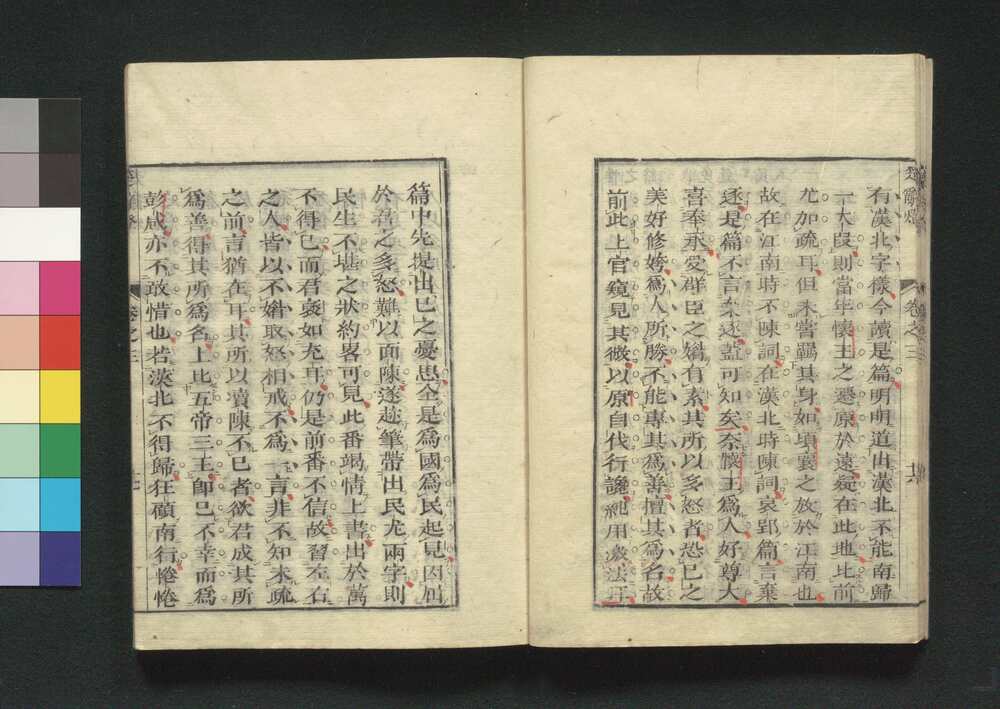 楚辭燈 卷之三 十六
有漢北字樣今讀是篇明明道出漢北不能南歸
一大段則當年懷王之遷原於遠疑在此地比前
尤加疏耳但未嘗羈其身如頃襄之放於江南也
故在江南時不陳詞在漢北時陳詞哀郢篇言棄
逐是篇不言棄逐蓋可知矣奈懷王爲人好尊大
喜奉承受群臣之媚有素其所以多怒者恐已之
美好修姱爲人所勝不能專其爲善擅其爲名故
前此上官窺見其微以原自伐行讒純用激法耳
篇中先提出已之憂思全是爲國爲民起見因回
於君之多怒難以面陳遂越筆帶出民尤兩字則
民生不堪之狀約畧可見此番竭情上書出於萬
不得已而君褎如充耳仍是前番不信故習左右
之人皆以不媚取怒相戒不爲一言非不知未疏
之前言猶在耳其所以瀆陳不已者欲君成其所
爲善得其所爲名上比五帝三王卽已不幸而爲
彭咸亦不敢惜也若漢北不得歸狂顧南行惓惓
卷之三